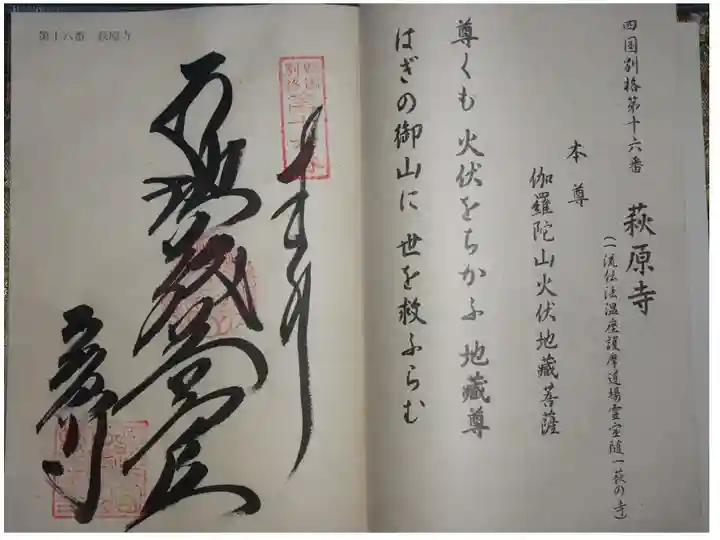 四国別格第十六番
萩原寺
(一流伝法温座護摩道場霊室随一萩の寺)
本尊
伽羅陀山火伏地蔵菩薩
尊くも 火伏をちかふ 地蔵尊
はぎの御山に 世を救ふらむ
第十六番 萩原寺
奉拝
地蔵